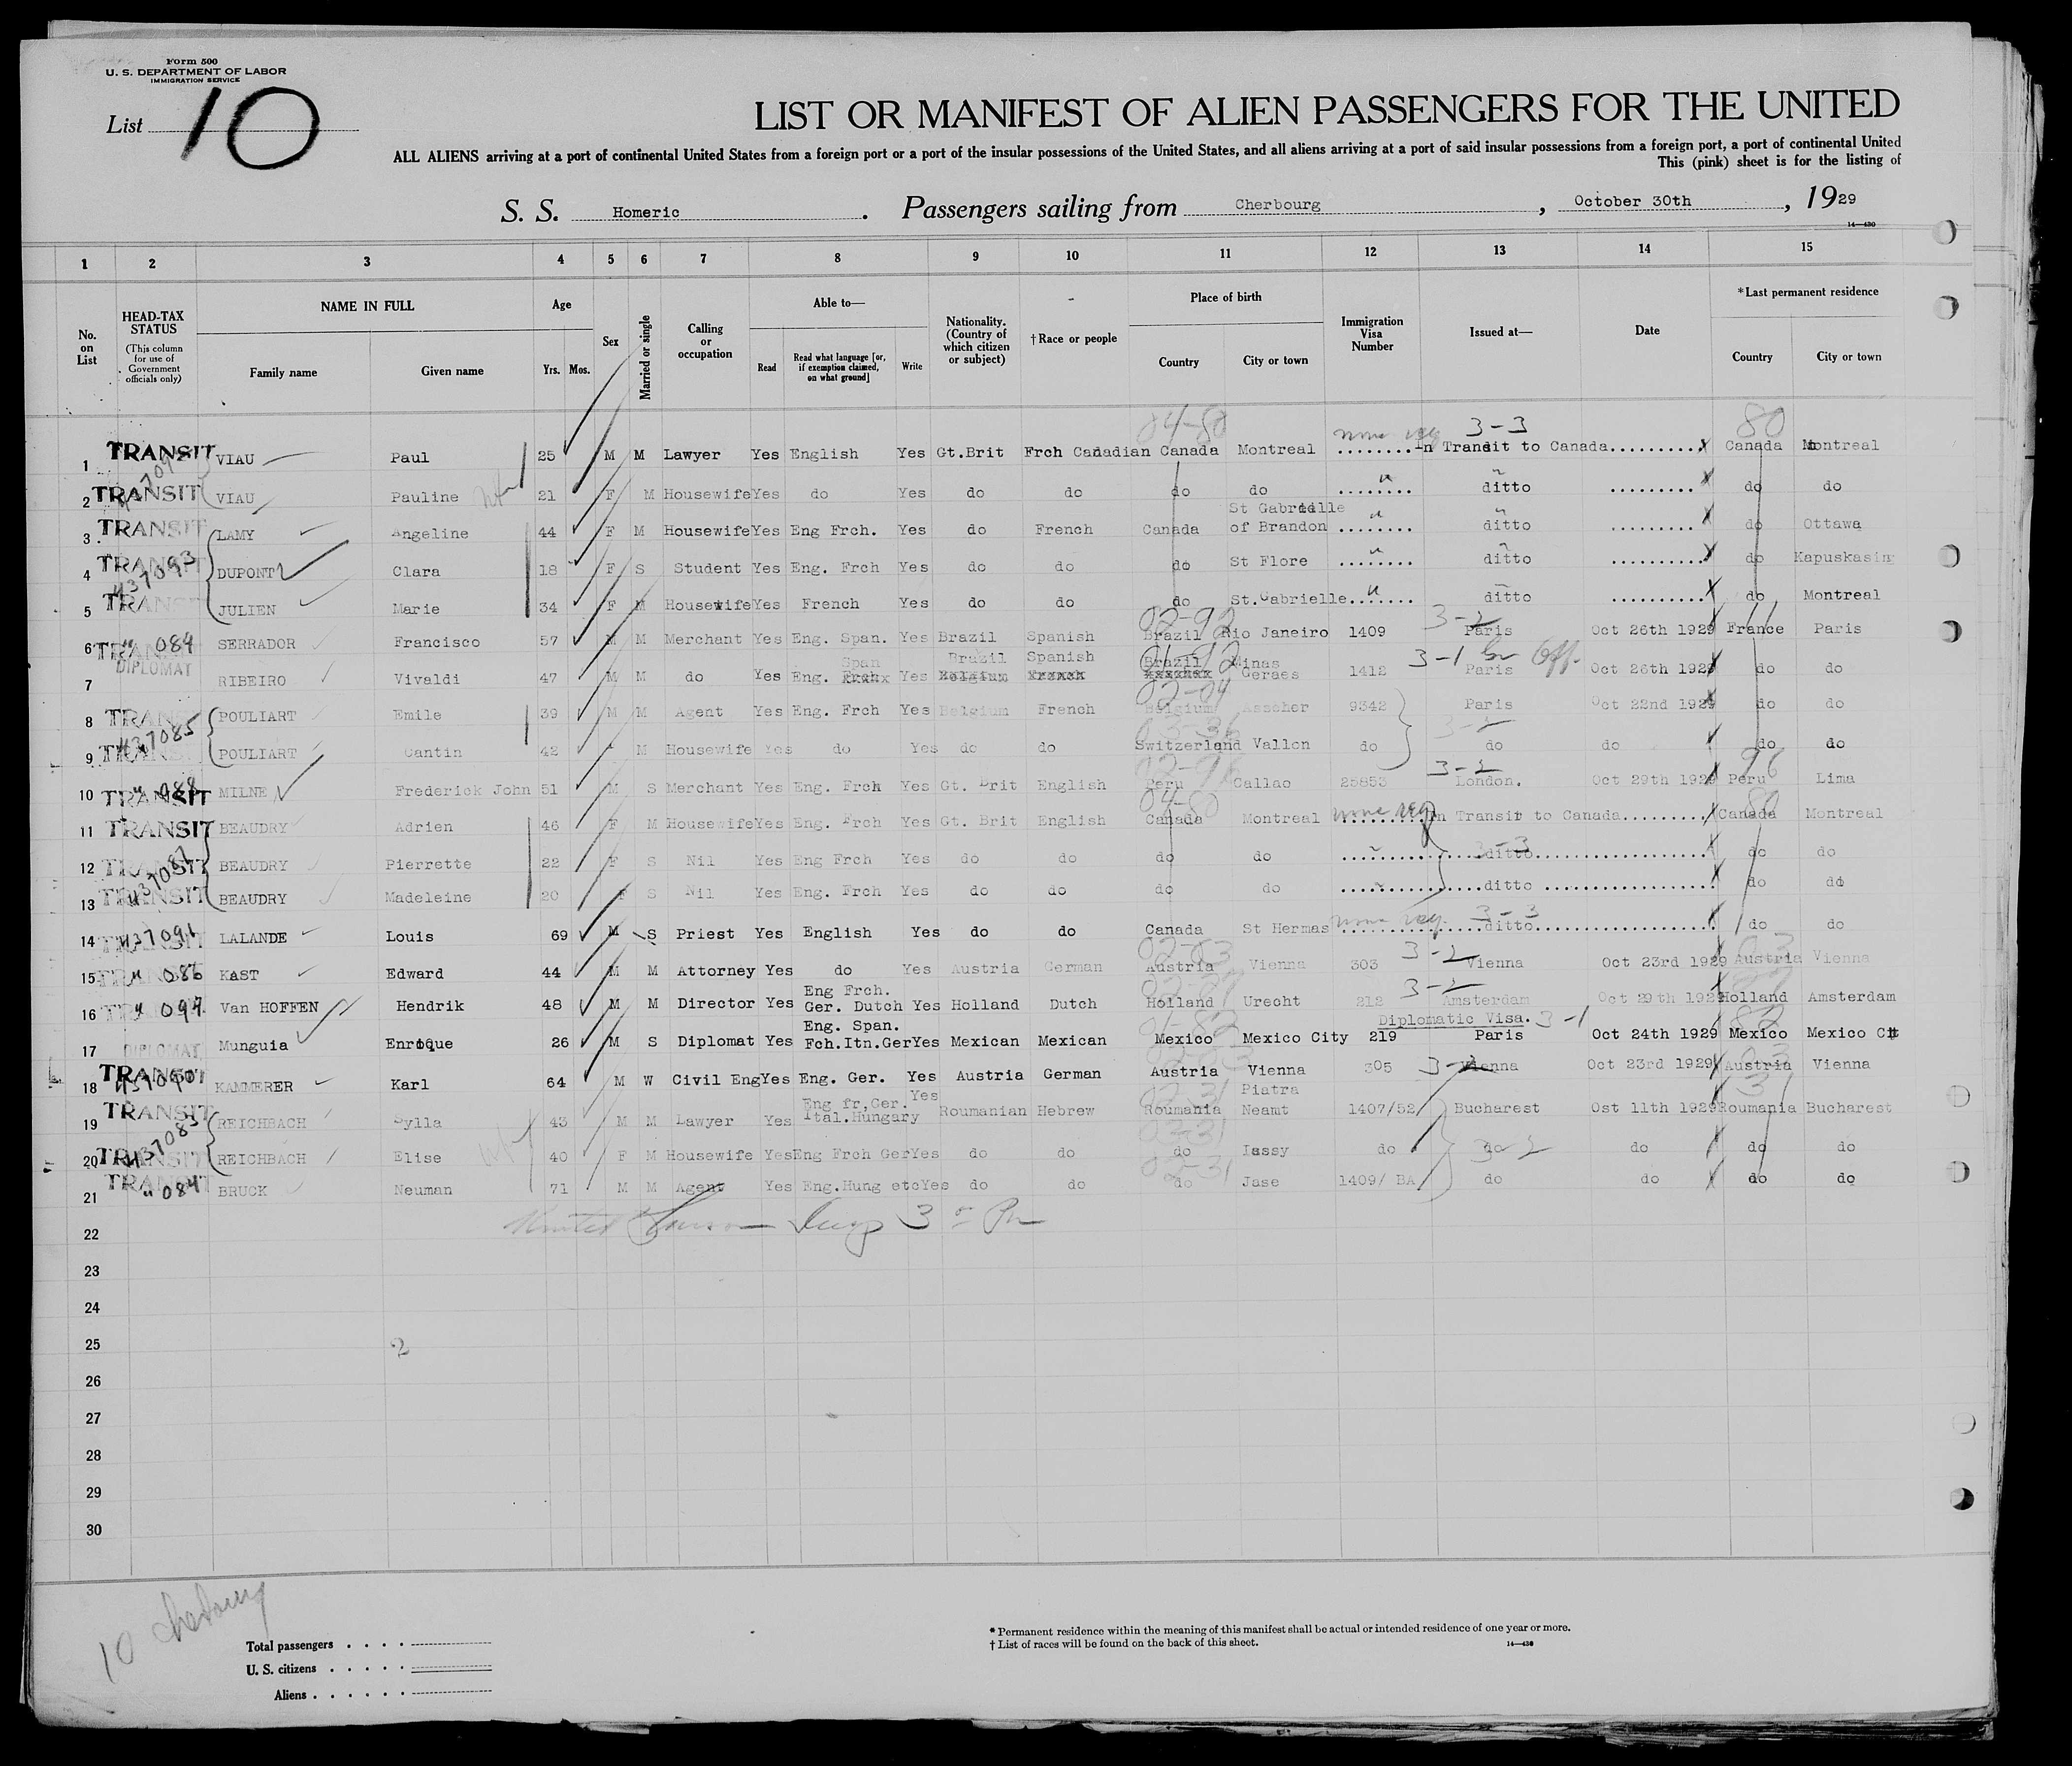 Form 500
U. S. DEPARTMENT OF LABOR
IMMIGRATION SERVICE
List 10
LIST OR MANIFEST OF ALIEN PASSENGERS FOR THE UNITED
ALL ALIENS arriving at a port of continental United States from a foreign port or a port of the insular possessions of the United States, and all aliens arriving at a port of said insular possessions from a foreign port, a port of continental United
This (pink) sheet is for the listing of
S. S. Homeric. Passengers sailing from Cherbourg, October 30th, 1929
14—430
1 2 3 4 5 6 7 8 9 10 11 12 13 14 15
No. on List
HEAD-TAX STATUS (This column for use of Government officials only)
NAME IN FULL Family name Given name
Age Yrs. Mos.
Sex
Married or single
Calling or occupation
Able to— Read Read what language [or, if exemption claimed, on what ground] Write
Nationality. (Country of which citizen or subject)
†Race or people
Place of birth Country City or town
Immigration Visa Number
Issued at—
Date
*Last permanent residence Country City or town
04-80 none req 3-3 80
1 TRANSIT VIAU Paul 25 M M Lawyer Yes English Yes Gt.Brit Frch Canadian Canada Montreal ........In Transit to Canada.......... Canada Montreal
2 TRANSIT VIAU Pauline 21 F M Housewife Yes do Yes do do do do ........ ditto ......... do do
3 TRANSIT LAMY Angeline 44 F M Housewife Yes Eng Frch. Yes do French Canada St Gabrielle of Brandon ........ ditto ......... do Ottawa
4 TRANSIT 437093 DUPONT Clara 18 F S Student Yes Eng. Frch Yes do do do St Flore ........ ditto .......... do Kapuskasing
5 TRANSIT JULIEN Marie 34 F M Housewife Yes French Yes do do do St.Gabrielle ........ ditto .......... do Montreal
02-92 3-2
6 TRANSIT " 084 SERRADOR Francisco 57 M M Merchant Yes Eng. Span. Yes Brazil Spanish Brazil Rio Janeiro 1409 Paris Oct 26th 1929 France Paris
7 DIPLOMAT RIBEIRO Vivaldi 47 M M do Yes Eng. Span Yes Brazil Spanish Brazil Minas Geraes 1412 3-1 Paris Oct 26th 1929 do do
02-04
8 TRANSIT POULIART Emile 39 M M Agent Yes Eng. Frch Yes Belgium French Belgium Asscher 9342 Paris Oct 22nd 1929 do do
437085 3-2
9 TRANSIT POULIART Cantin 42 M Housewife Yes do Yes do do Switzerland Vallon do do do do do
3-2 96
10 TRANSIT MILNE Frederick John 51 M S Merchant Yes Eng. Frch Yes Gt. Brit English Peru Callao 25853 London. Oct 29th 1929 Peru Lima
04-80 none req 80
11 TRANSIT BEAUDRY Adrien 46 F M Housewife Yes Eng. Frch Yes Gt. Brit English Canada Montreal In Transit to Canada......... Canada Montreal
12 TRANSIT BEAUDRY Pierrette 22 F S Nil Yes Eng Frch Yes do do do do ditto do do
437087 3-3
13 TRANSIT BEAUDRY Madeleine 20 F S Nil Yes Eng. Frch Yes do do do do ditto do do
none req. 3-3
14 TRANSIT 437091 LALANDE Louis 69 M S Priest Yes English Yes do do Canada St Hermas ditto do do
3-2
15 TRANSIT " 086 KAST Edward 44 M M Attorney Yes do Yes Austria German Austria Vienna 303 Vienna Oct 23rd 1929 Austria Vienna
3-2
16 TRANSIT " 097 Van HOFFEN Hendrik 48 M M Director Yes Eng Frch. Ger. Dutch Yes Holland Dutch Holland Urecht 212 Amsterdam Oct 29th 1929 Holland Amsterdam
Diplomatic Visa. 3-1
17 DIPLOMAT Munguia Enrique 26 M S Diplomat Yes Eng. Span. Fch.Itn.Ger Yes Mexican Mexican Mexico Mexico City 219 Paris Oct 24th 1929 Mexico Mexico Cit
18 TRANSIT 437090 KAMMERER Karl 64 M W Civil Eng Yes Eng. Ger. Yes Austria German Austria Vienna 305 Vienna Oct 23rd 1929 Austria Vienna
19 TRANSIT REICHBACH Sylla 43 M M Lawyer Yes Eng fr,Ger. Ital.Hungary Yes Roumanian Hebrew Roumania Piatra Neamt 1407/52 Bucharest Ost 11th 1929 Roumania Bucharest
20 TRANSIT REICHBACH Elise 40 F M Housewife Yes Eng Frch Ger Yes do do do Iassy do do do do do
21 TRANSIT " 084 BRUCK Neuman 71 M M Agent Yes Eng.Hung etc Yes do do do Jase 1409/ BA do do do do
22
23
24
25
2
26
27
28
29
30
10 Cherbourg
Total passengers . . . .
U. S. citizens . . . . .
Aliens . . . . . .
* Permanent residence within the meaning of this manifest shall be actual or intended residence of one year or more.
† List of races will be found on the back of this sheet.
14—430